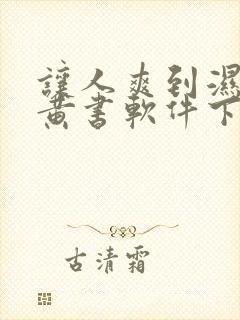 讓人爽到濕
黃書軟件下
古清霜